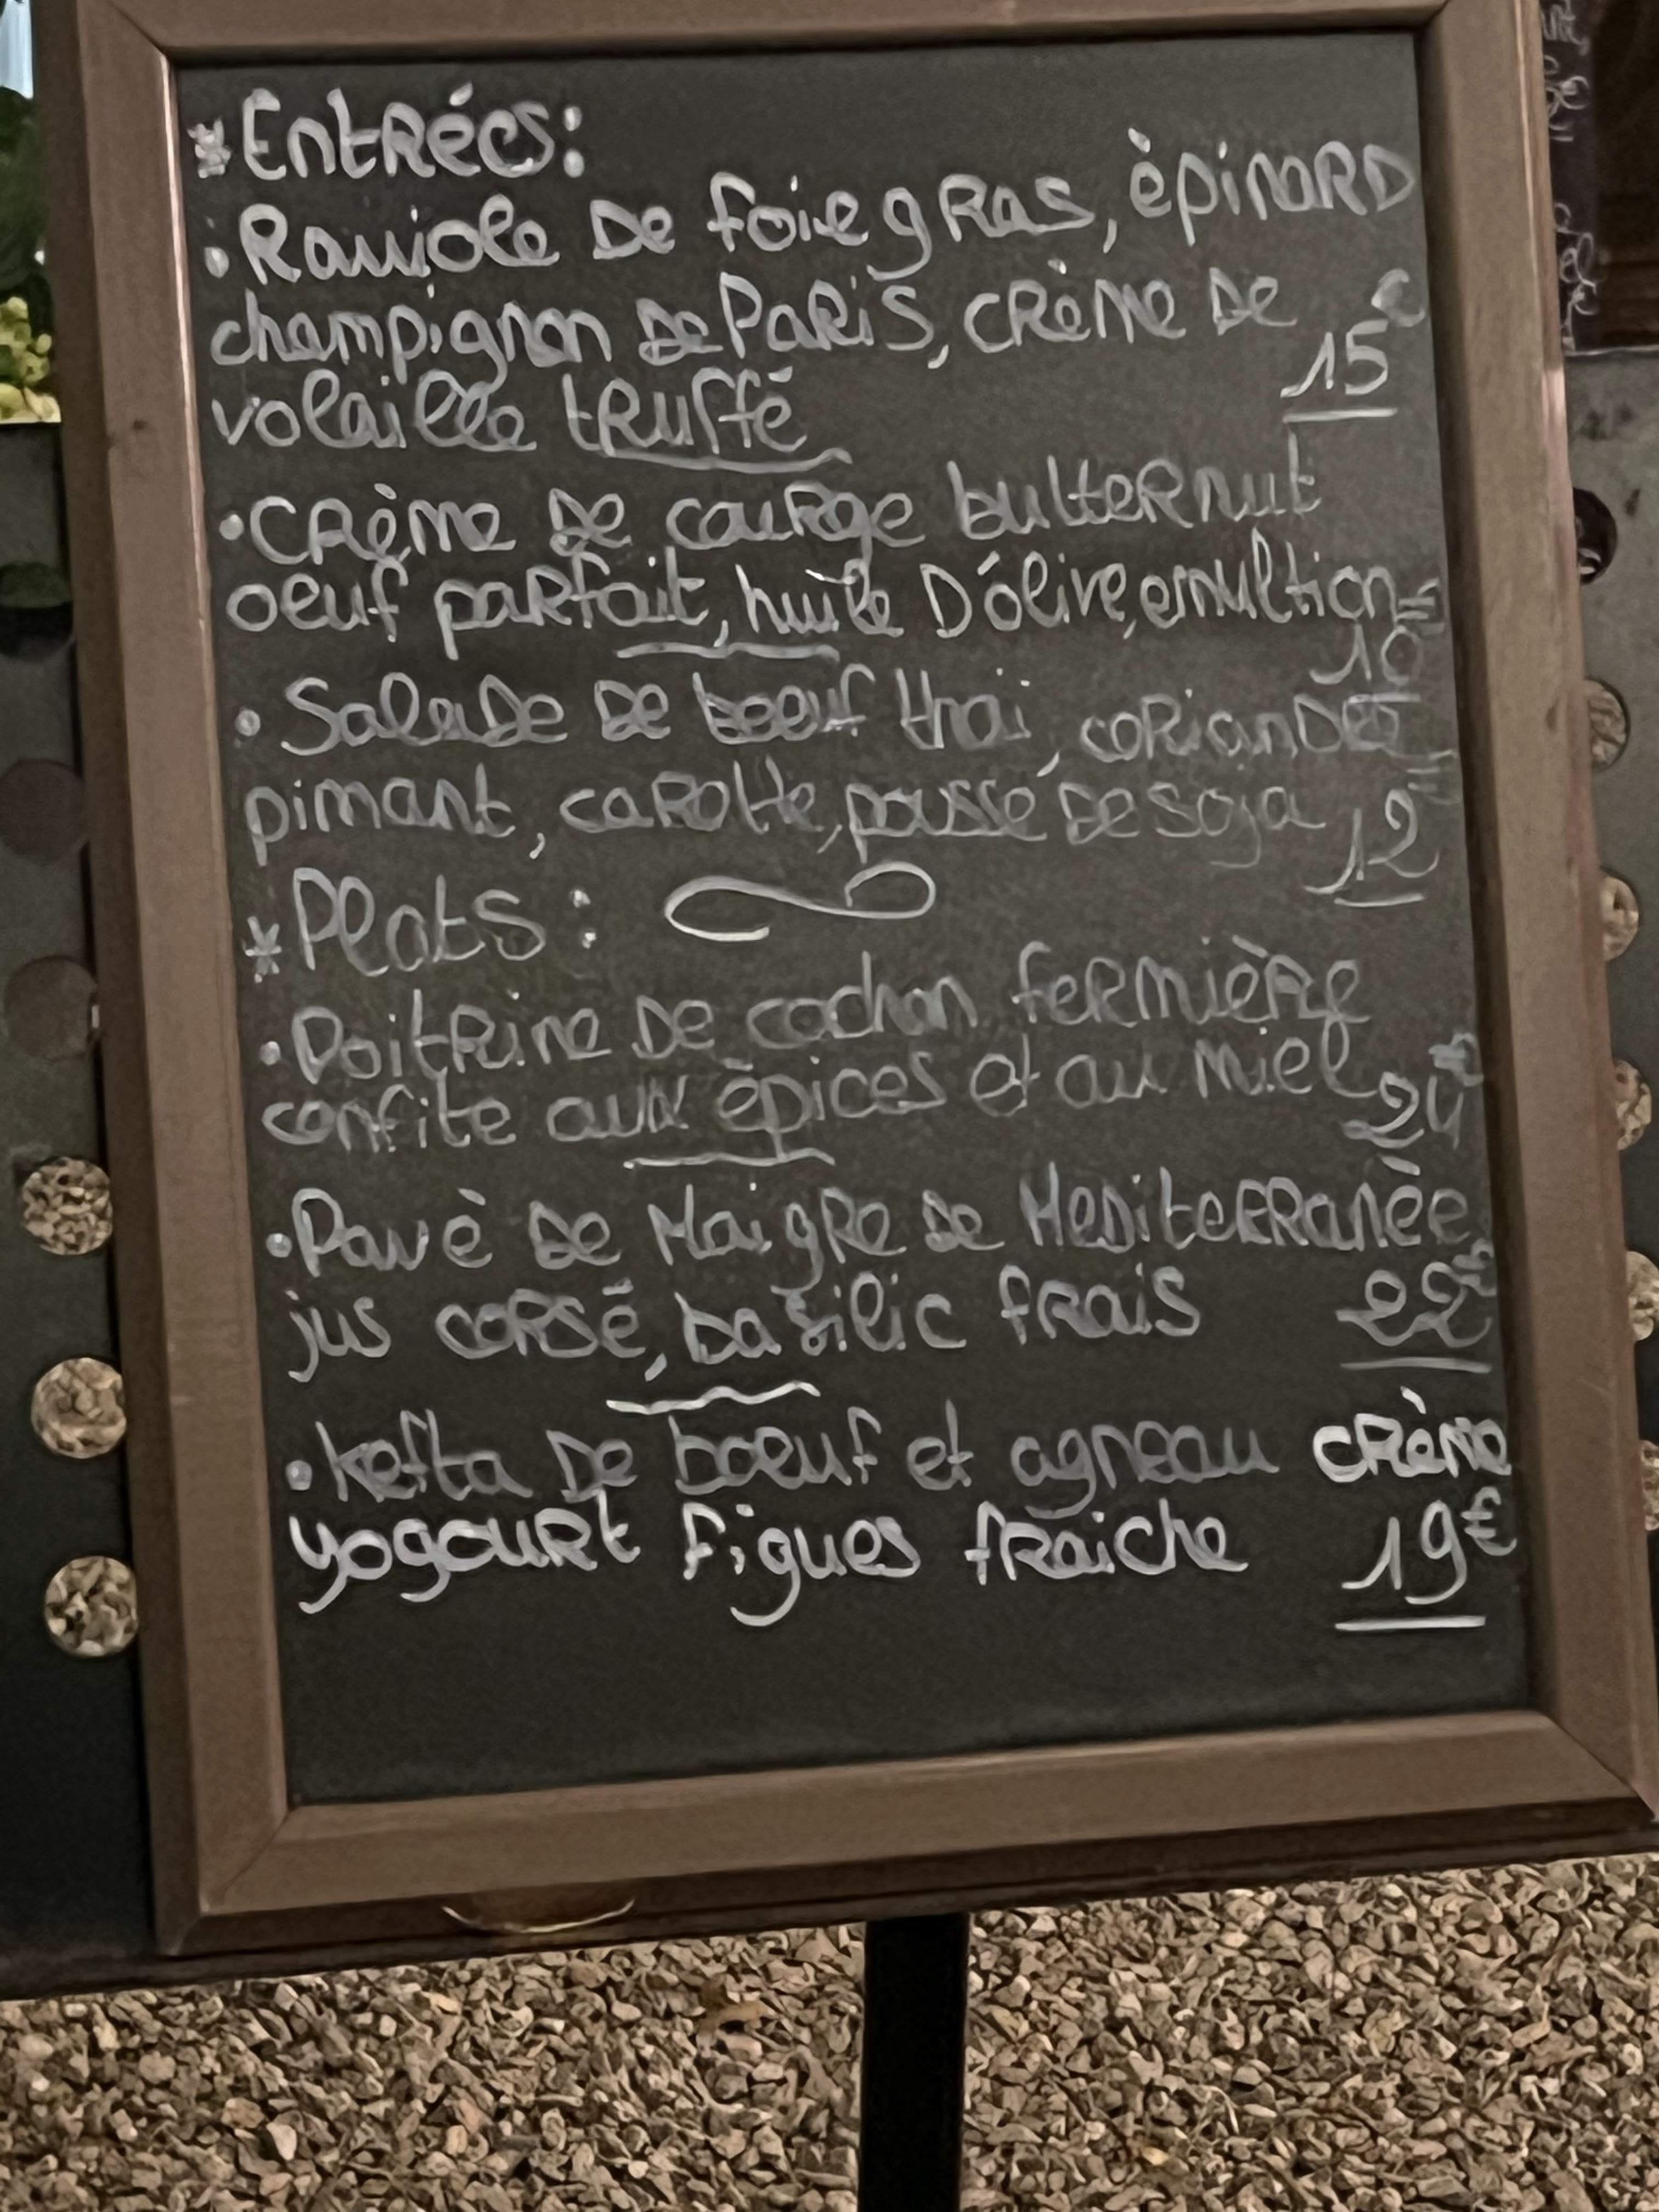 * Entrées:
• Raviole de foie gras, èpinard
champignon de Paris, crème de
volaille truffé 15€
• Crème de courge butternut
oeuf parfait, huile D'olive, emultion
10
• Salade de boeuf thai, coriandre
pimant, carotte, pousse de soja 12
* Plats :
• Poitrine de cochon fermière
confite aux èpices et au miel 24€
• Pavè de Maigre de Mediterranèe
jus corsé, basilic frais 22€
• kefta de boeuf et agneau crème
yogourt Figues fraiche 19€